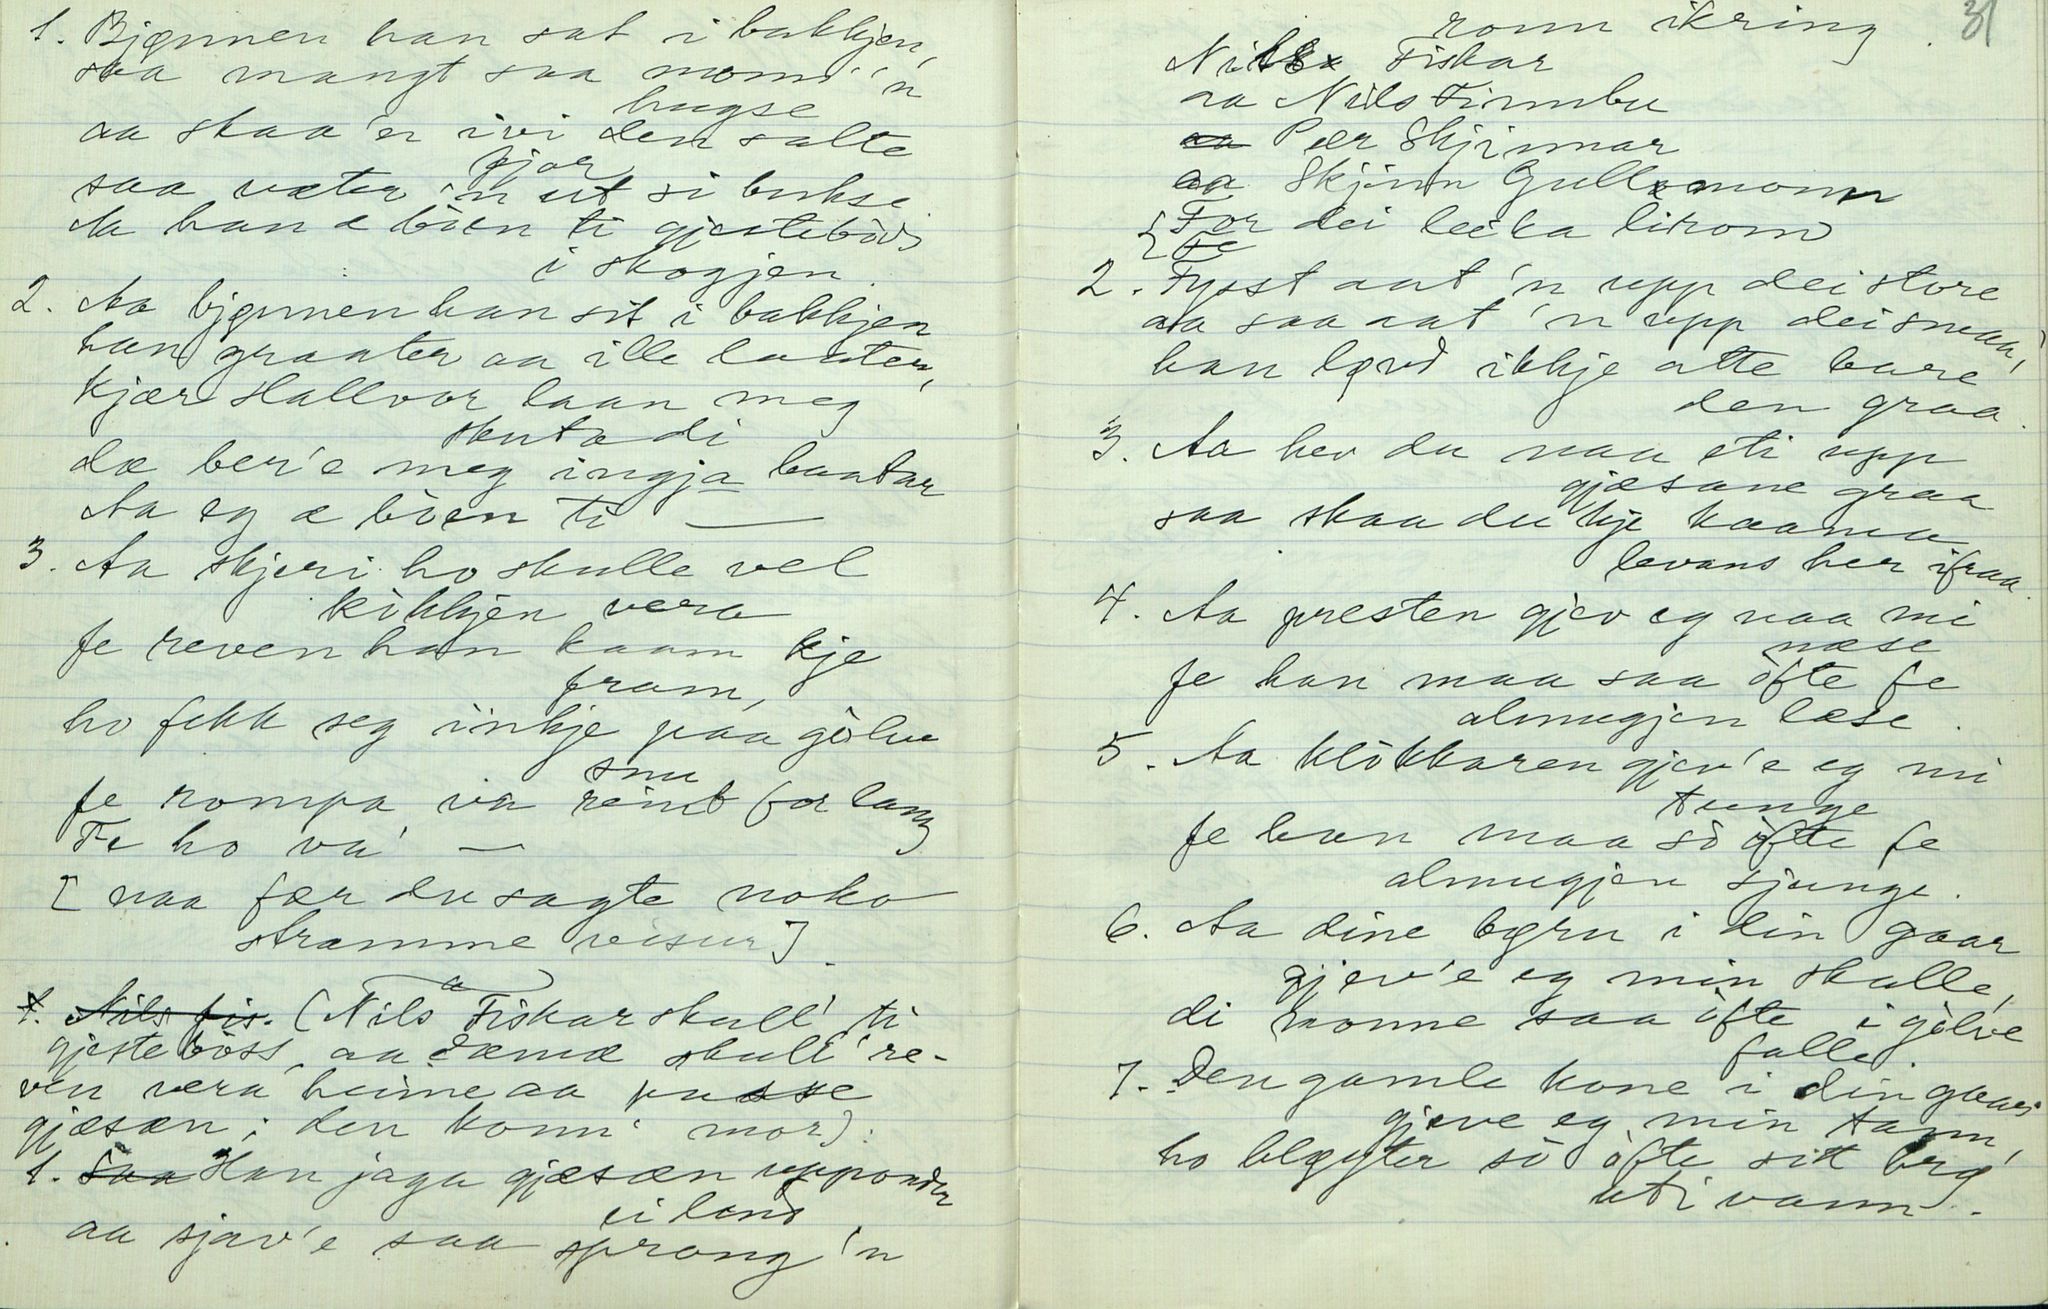 1. Bjønnen han sat i bakkjen,
saa mangt saa monn 'n
hugse
aa skaa 'n ivi den salte
fjor
saa væter 'n ut si bukse.
Aa han æ böen ti gjestebòds
i skogjen.
2. Aa bjønnen han sit i bakkjen
han graater aa ille læter,
Kjær Hallvor laan meg
skuta di
dæ ber'e meg ingja baatar
Aa eg æ böen ti —
3. Aa skjeri ho skulle vel
kikkjen vera
fe reven han kaam kje
fram,
ho fekk seg inkje paa gòlve
snu
fe rompa va reint for lang
Fe ho va' —
[ naa fær du sagte noko
stramme visur].
1. Nils fis. (Nils Fiskar skull' ti
gjestebòss, aa dæmæ skull' re-
ven vera heime aa passe
gjæsæn; den konn' mor):
1. Saa Han jaga gjæsæn upponder
ei land
aa sjav'e saa sprang 'n
31
ronn ikring
Nils Fiskar
aa Nils Finnbu
aa Per Skjinnar
aa Skjinn Gullmonn
[ For dei leika litrom
[ Fe
2. Fysst aat 'n upp dei store
aa saa aat 'n upp dei smaa,
han løvd ikkje atte bare
den graa.
3. Aa hev du naa eti upp
gjæsane graa
saa skaa du kje kaama
levans her ifraa.
4. Aa presten gjev eg naa mi
næse
fe han maa saa òfte fe
almugjen læse.
5. Aa klòkkaren gjev'e eg mi
tunge
fe han maa sò òfte fe
almugjen sjunge.
6. Aa dine børu i din gaar
gjev'e eg min skalle,
di monne saa òfte i gòlve
falle.
7. Den gamle kone i din gaar
gjeve eg min tann,
ho bløyter sò òfte sitt brø'
uti vann.